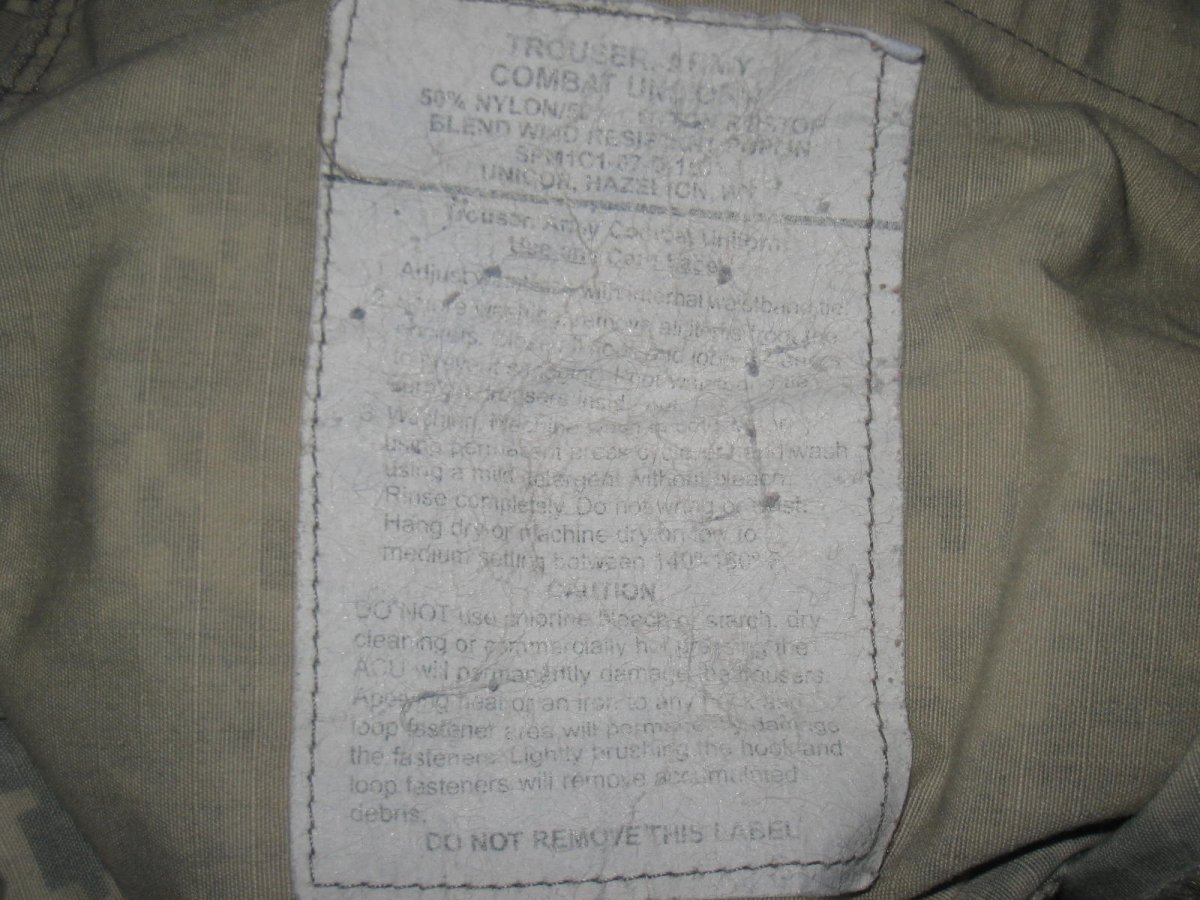 TROUSER, ARMY
COMBAT UNIFORM
50% NYLON/50% COTTON RIPSTOP
BLEND WIND RESISTANT POPLIN
SPM1C1-07-D
UNICOR, HAZELTON,
Trouser, Army Combat Uniform
Use and Care
1. Adjust waistband with internal waistband tie.
2. Before washing, remove all items from the
pockets. Close hook and loop
to prevent snagging.
trousers inside out.
3. Washing. Machine wash in cold
using permanent press cycle, or hand wash
using a mild detergent without bleach.
Rinse completely. Do not wring or twist.
Hang dry or machine dry on low to
medium setting between 140°-160° F.
CAUTION
DO NOT use chlorine bleach or starch, dry
cleaning or commercially hot pressing the
ACU will permanently damage the trousers.
Applying heat or an iron to any hook and
loop fastener area will permanently damage
the fasteners. Lightly brushing the hook and
loop fasteners will remove accumulated
debris.
DO NOT REMOVE THIS LABEL